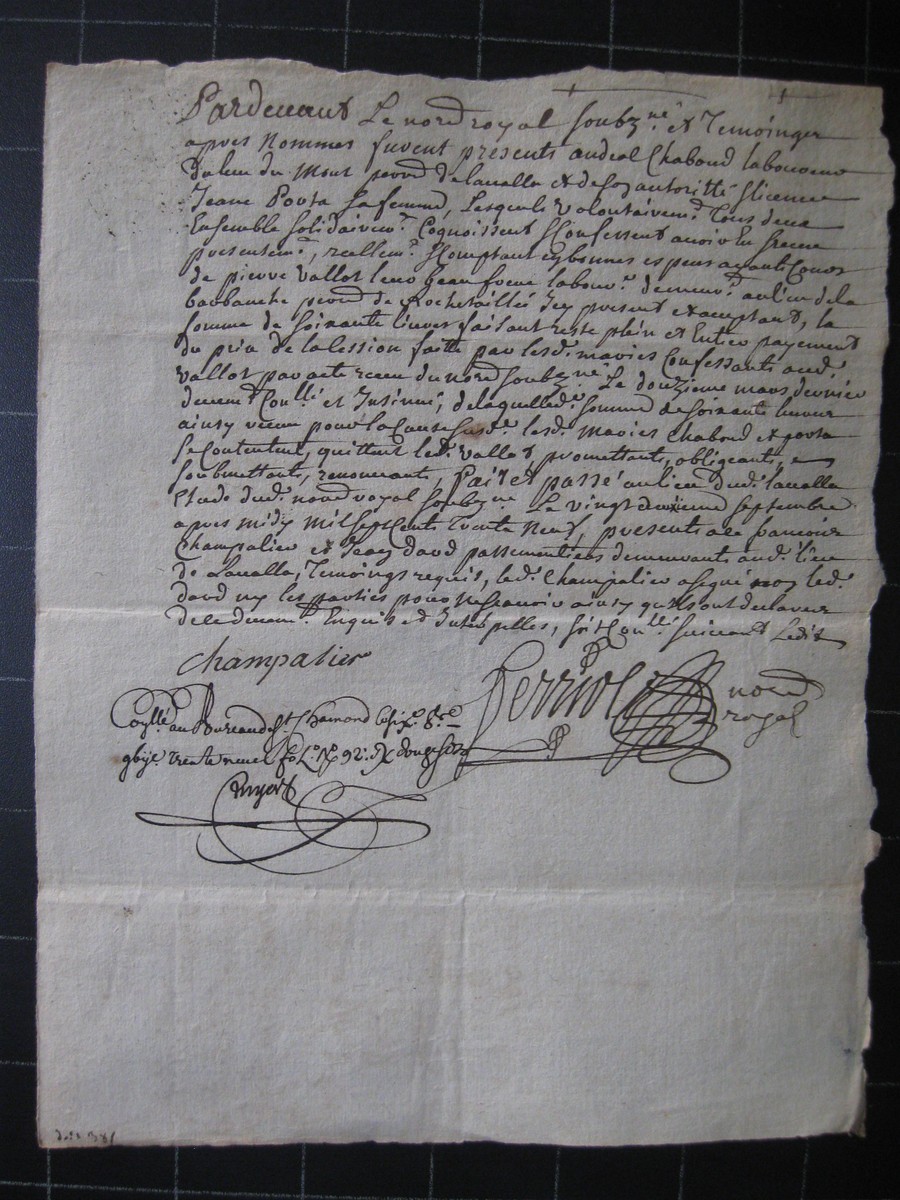 Pardevant Le no.re royal soubz.né et Temoings
apres Nommes furent presents andreal Chaboud laboureur
du lieu du Mont parr.e de lavalla et de son autoritté & licence
Jeane Poyta sa femme, Lesquels volontairem.t Tous deux
Ensemble solidairem.t Cognoissent & Confessent avoir En
presentem.t, reellem.t & Comptant
de pierre vallot leur beau frere labour.r demeur.t au lieu de la
barbanche parr.e de Rochetaillée Icy present et acceptant, la
somme de soixante livres faisant reste plein et Entier payement
du prix de la Cession faitte par lesd. mariés Confessants aud.
vallot par acte receu du no.re soubz.né Le douzieme mars dernier
deuem.t Con.llé et Insinué, de laquelle d. somme de soixante livres
ainsy receue pour la Cause susd. lesd. Mariés Chaboud et poyta
se Contentent, quittent led. vallot promettants, obligeants,
soubmettants, renonceants, Fait et passé au lieu dud. lavalla
Etude dud. no.re royal soubz.né Le vingt deuxieme septembre
apres midy mil sept Cents trente Neuf, presents s.r francois
Champalier et Jean david passementiers demeurants aud. lieu
de Lavalla, Temoings requis, led. Champalier a signé non led.
david ny les parties pour Ne scavoir ainsy qu'ils ont declaré
de ce deuem.t Enquis et Interpelles, soit Con.llé suivant Ledit
Champalier
Perriolat no.re
royal
Con.llé au Bureau de S.t Chamond le six 8.re
trente neuf f.o n.o 92. Rx douze sols